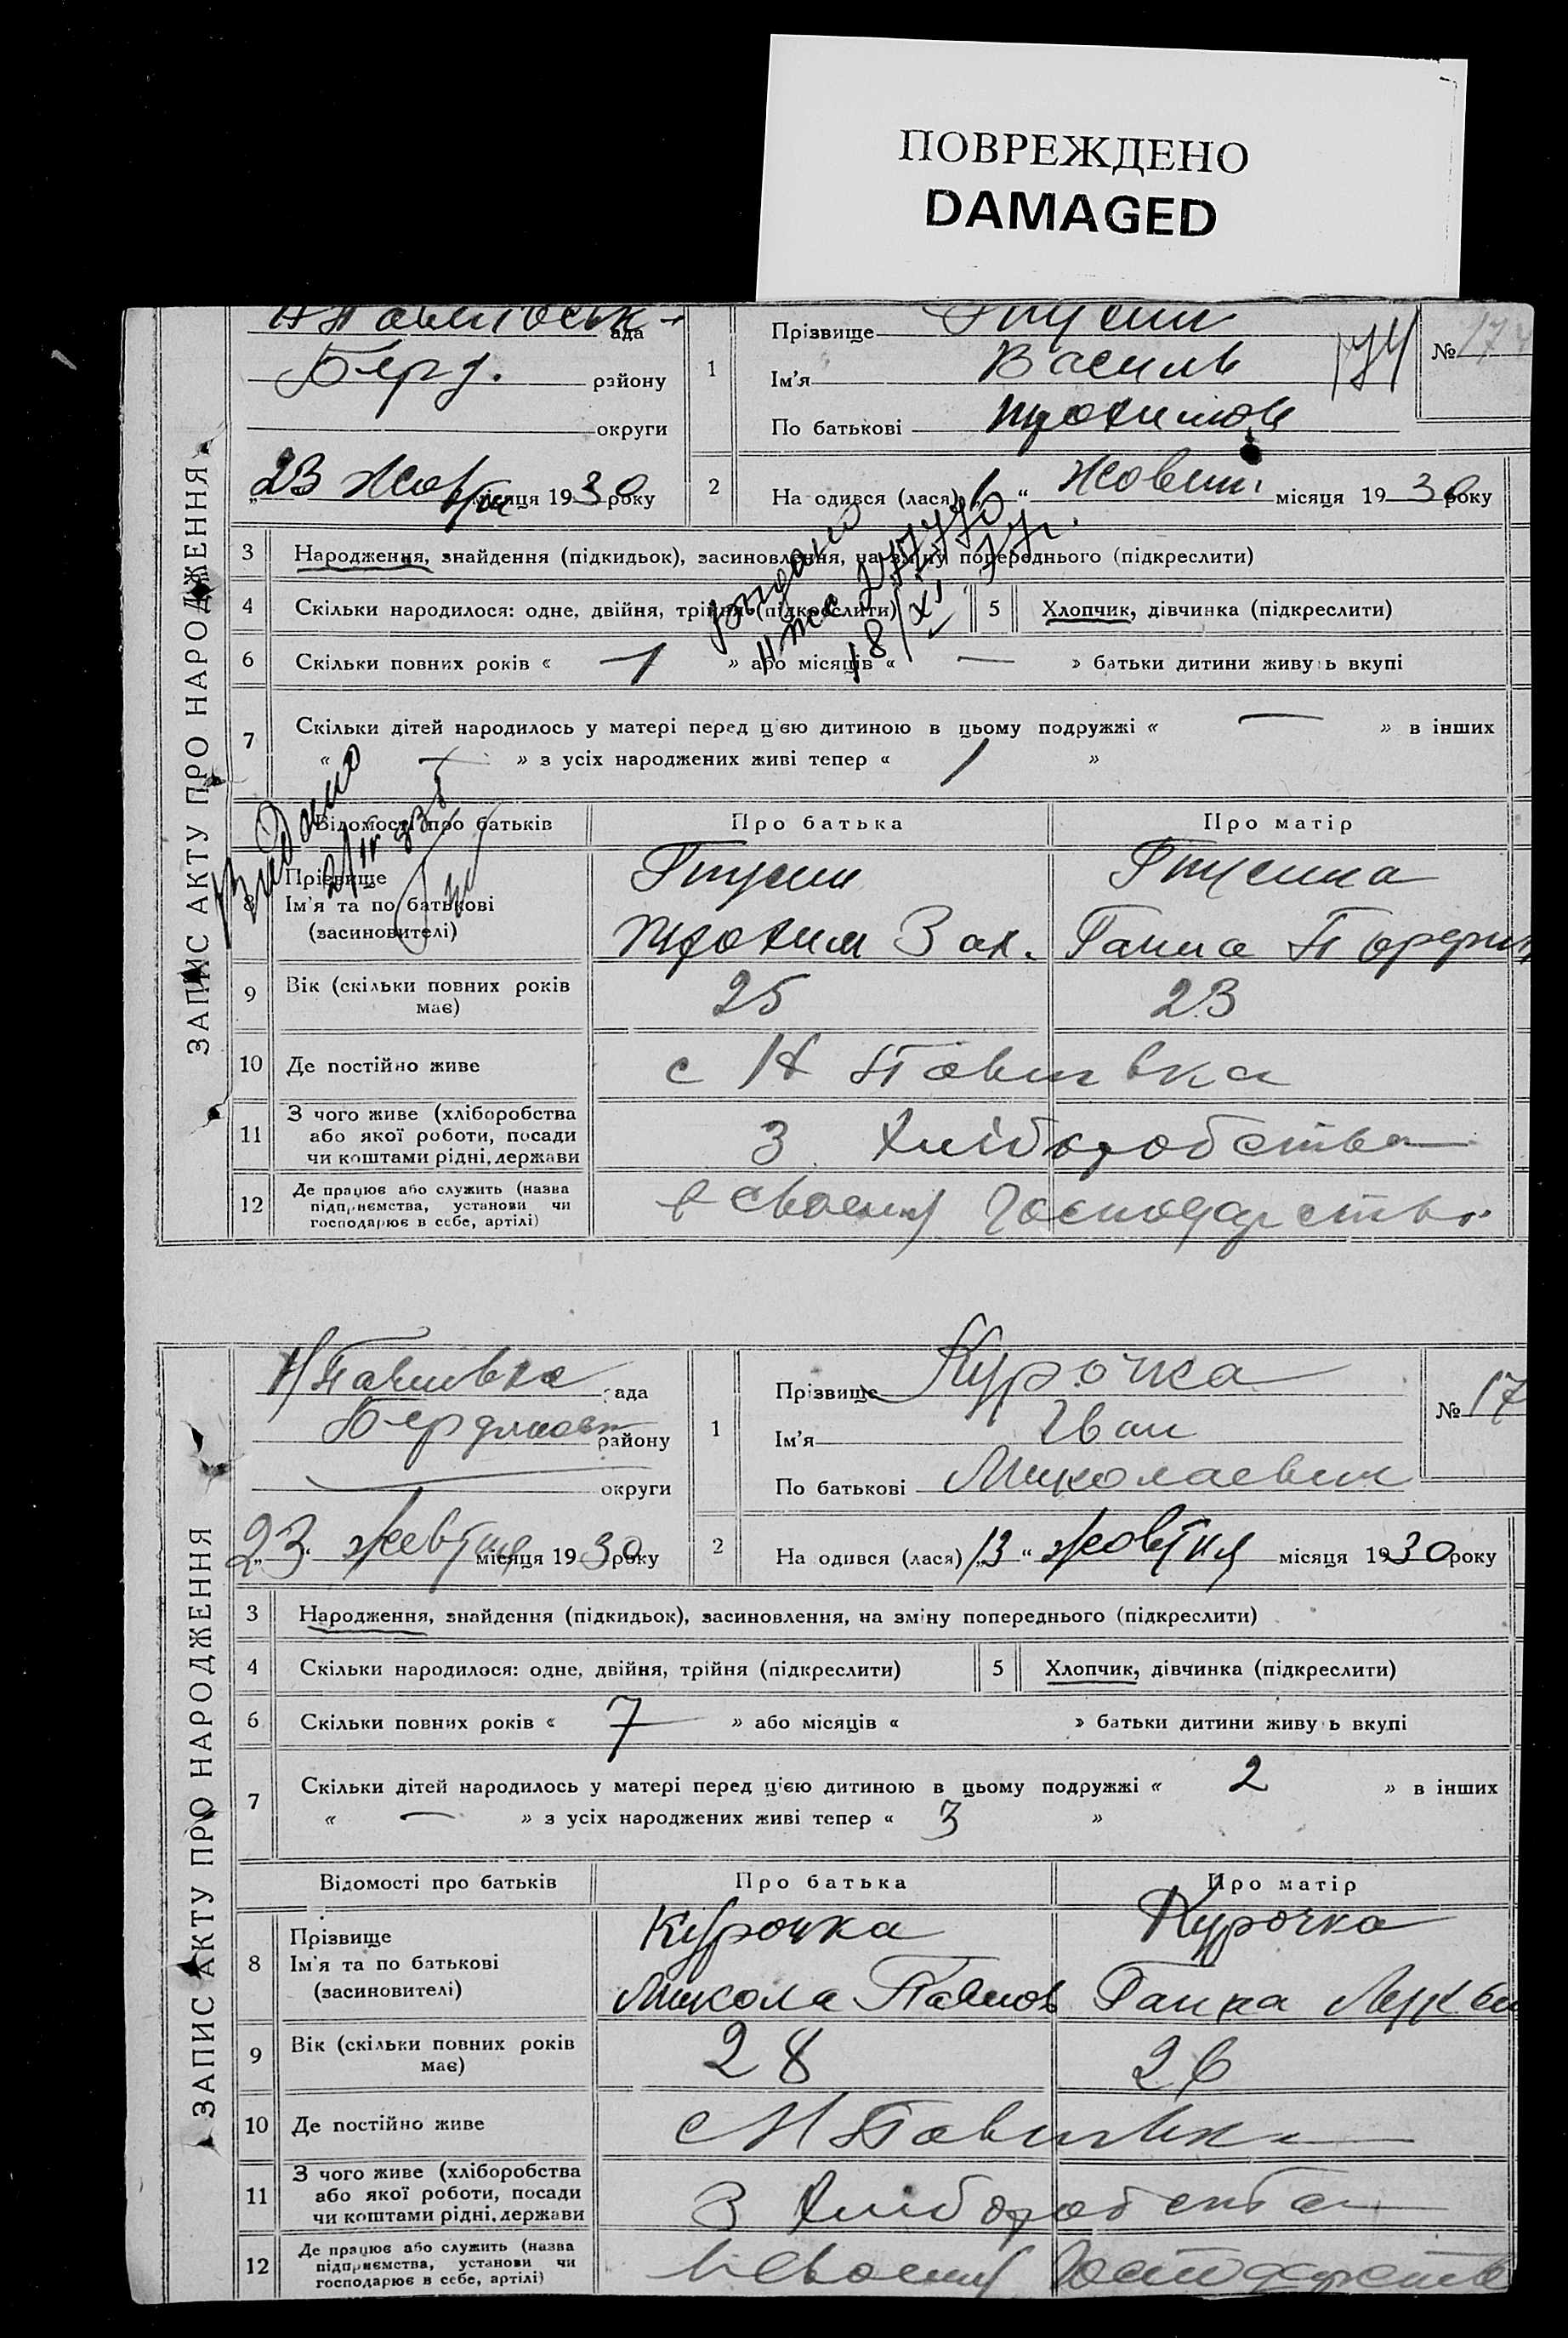 ПОВРЕЖДЕНО
DAMAGED
ЗАПИС АКТУ ПРО НАРОДЖЕННЯ
ада
Берд. району
округи
„23 Жовтн місяця 1930 року
1
Прізвище
Ім'я Василь
По батькові Трохимов
174
№ 174
2
На одився (лася) „ “ Жовтн. місяця 1930 року
3 Народження, знайдення (підкидьок), засиновлення, на зміну попереднього (підкреслити)
4 Скільки народилося: одне, двійня, трійня (підкреслити) 5 Хлопчик, дівчинка (підкреслити)
6 Скільки повних років « 1 » або місяців « — » батьки дитини живу ь вкупі
7 Скільки дітей народилось у матері перед цією дитиною в цьому подружжі « — » в інших
« — » з усіх народжених живі тепер « 1 »
Видано
18/XI
Видано
Відомості про батьків Про батька Про матір
8 Прізвище
Ім'я та по батькові Трохим Зах. Ганна
(засиновителі)
9 Вік (скільки повних років має) 25 23
10 Де постійно живе с Н Павлівка
11 З чого живе (хліборобства або якої роботи, посади чи коштами рідні, держави З хліборобства
12 Де працює або служить (назва підприємства, установи чи господарює в себе, артілі) в своему господарстві
ЗАПИС АКТУ ПРО НАРОДЖЕННЯ
Н Павлівка ада
Бердянськ району
округи
„23“ жовтня місяця 1930 року
1
Прізвище Курочка
Ім'я Іван
По батькові Миколаевич
№ 17
2
На одився (лася) „13“ жовтня місяця 1930 року
3 Народження, знайдення (підкидьок), засиновлення, на зміну попереднього (підкреслити)
4 Скільки народилося: одне, двійня, трійня (підкреслити) 5 Хлопчик, дівчинка (підкреслити)
6 Скільки повних років « 7 » або місяців « » батьки дитини живу ь вкупі
7 Скільки дітей народилось у матері перед цією дитиною в цьому подружжі « 2 » в інших
« — » з усіх народжених живі тепер « 3 »
Відомості про батьків Про батька Про матір
8 Прізвище Курочка Курочка
Ім'я та по батькові Микола Павлов Ганна
(засиновителі)
9 Вік (скільки повних років має) 28 26
10 Де постійно живе с Н Павлівка
11 З чого живе (хліборобства або якої роботи, посади чи коштами рідні, держави З хліборобства
12 Де працює або служить (назва підприємства, установи чи господарює в себе, артілі) в своему господарстві